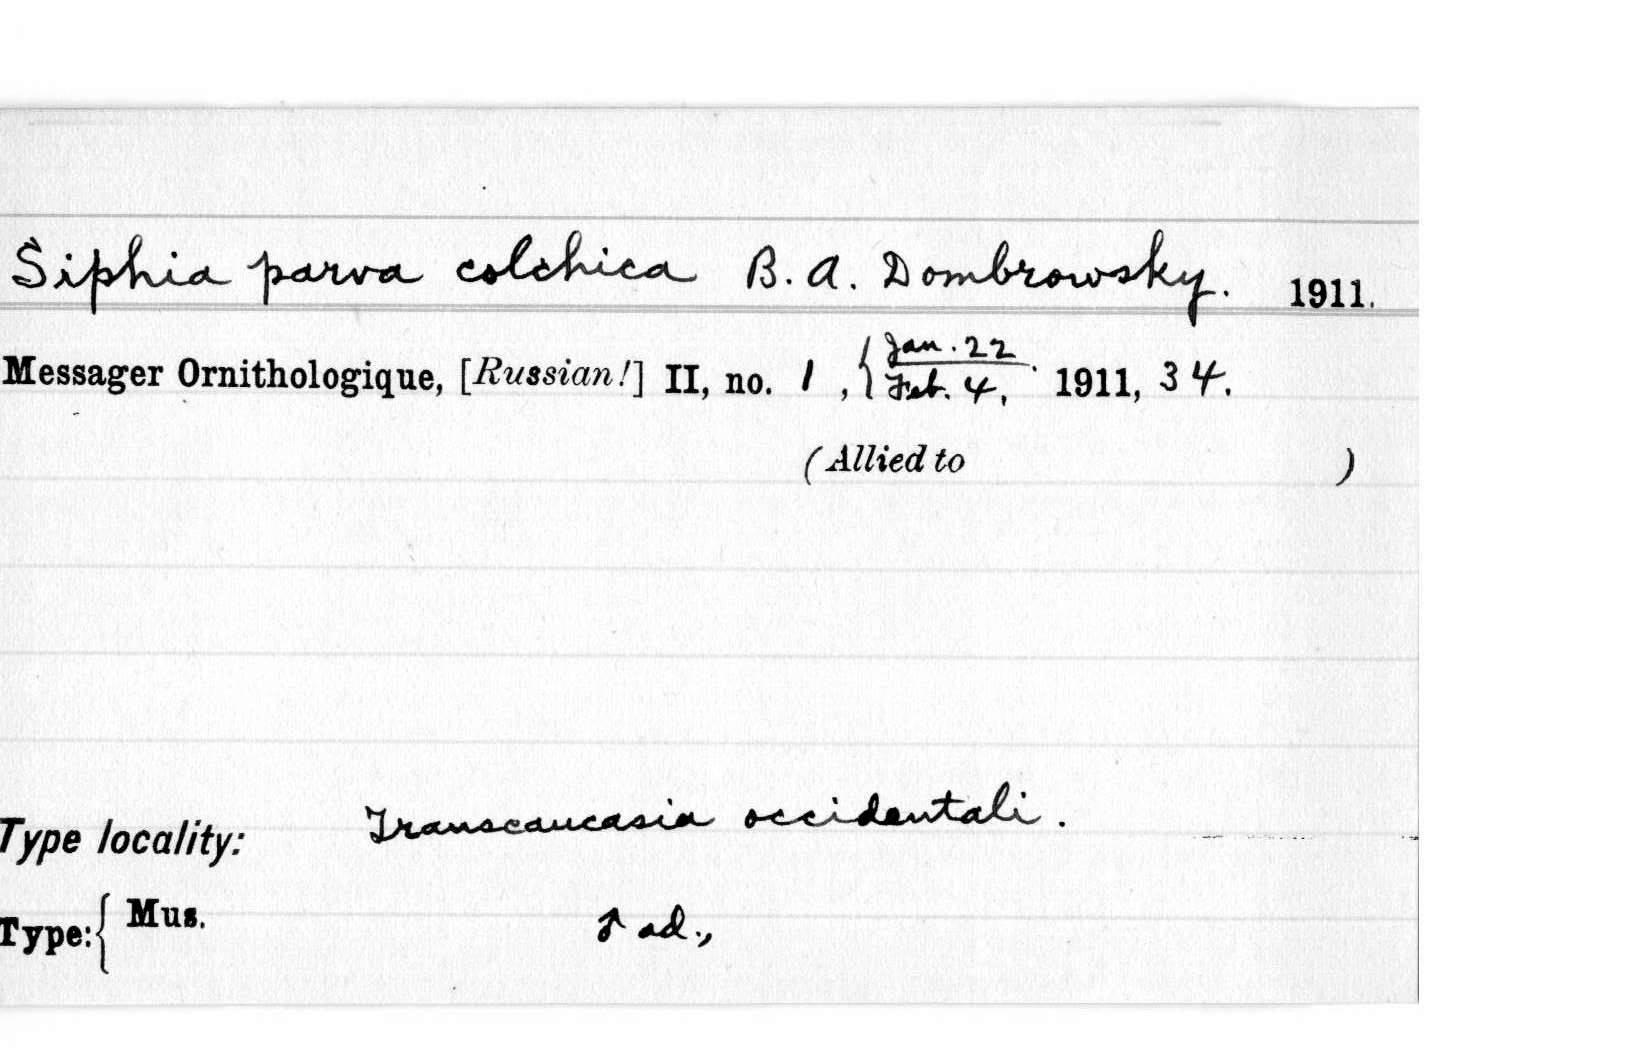 Siphia parva colchica B. A. Dombrowsky. 1911.
Messager Ornithologique, [Russian!] II, no. 1, { Jan. 22 / Feb. 4, 1911, 34.
(Allied to )
Transcaucasia occidentali.
Type locality:
Type: { Mus. ♂ ad.,